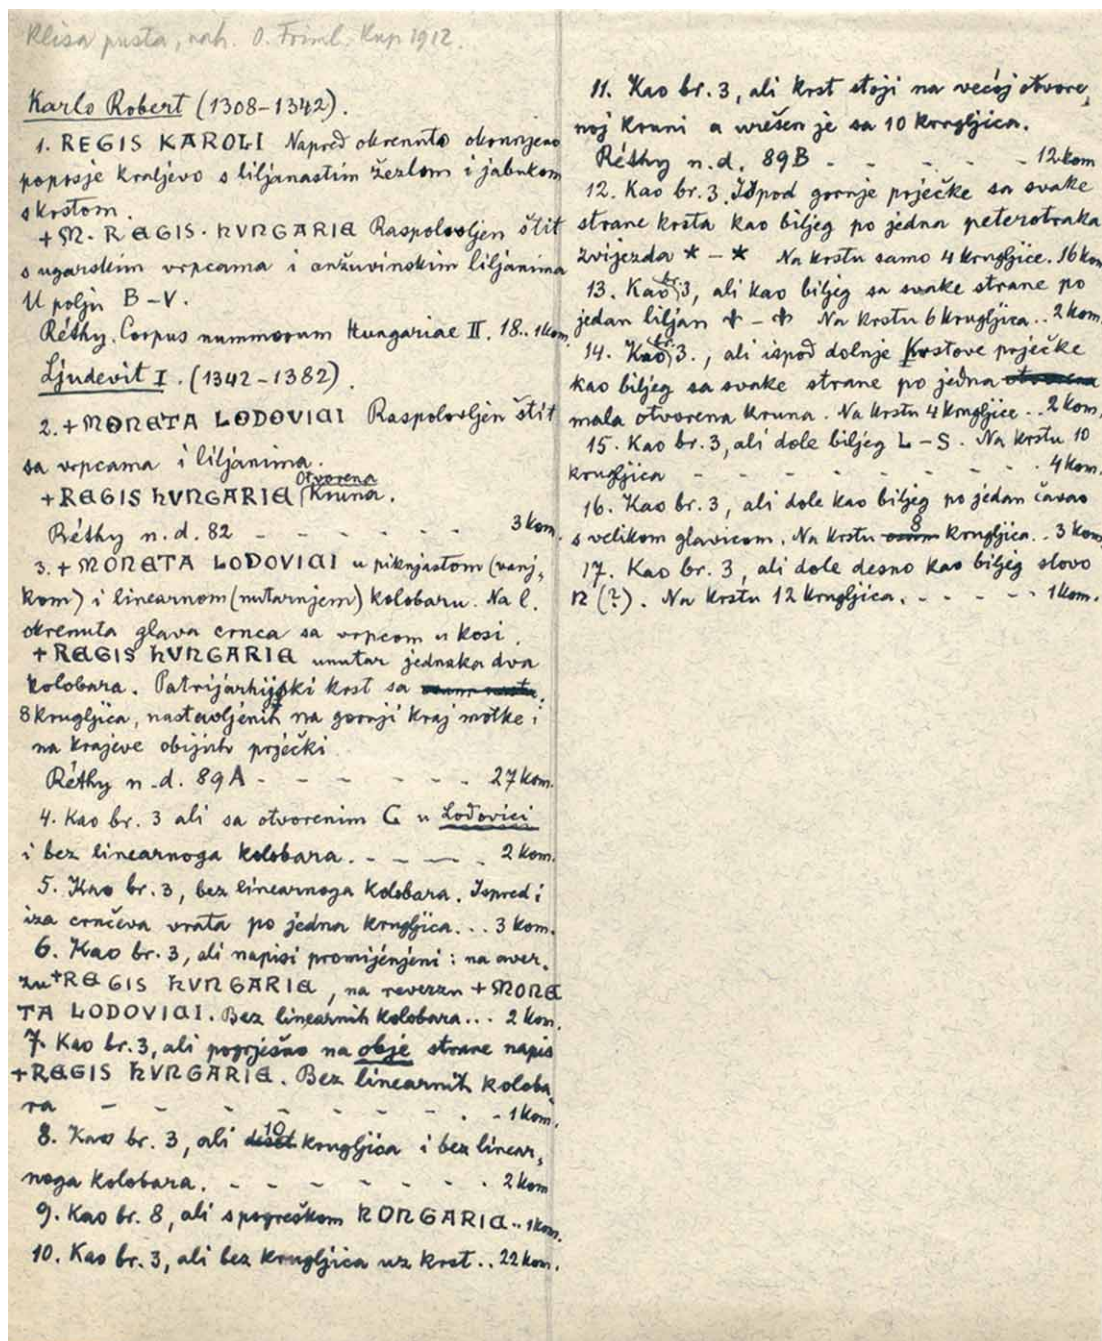 Klisa pusta, nah. O. Friml. Kup 1912.
Karlo Robert (1308-1342).
1. REGIS KAROLI Napred okrenuto okrunjeno
poprsje kraljevo s liljanastim žezlom i jabukom
s krstom.
+M. REGIS. hVNGARIE Raspolovljen štit
s ugarskim vrpcama i anžuvinskim liljanima
U polju B-V.
Réthy. Corpus nummorum Hungariae II. 18.. 1 kom.
Ljudevit I. (1342-1382).
2. +MONETA LODOVICI Raspolovljen štit
sa vrpcama i liljanima.
+REGIS hVNGARIE Otvorena kruna.
Réthy n.d. 82 - - - - - - 3 kom.
3. +MONETA LODOVICI u piknjastom (vanj-
kom) i linearnom (nutarnjem) kolobaru. Na l.
okrenuta glava crnca sa vrpcom u kosi.
+REGIS hVNGARIE unutar jednaka dva
kolobara. Patrijarhijski krst sa
8 krugljica, nastavljenih na gornji kraj motke i
na krajeve obijuh prječki
Réthy n.d. 89A - - - - - - 27 kom.
4. Kao br. 3 ali sa otvorenim C u Lodovici
i bez linearnoga kolobara. - - - . 2 kom.
5. Kao br. 3, bez linearnoga kolobara. Ispred i
iza crnčeva vrata po jedna krugljica... 3 kom.
6. Kao br. 3, ali napisi promijenjeni: na aver-
zu +REGIS hVNGARIE, na reverzu +MONE
TA LODOVICI. Bez linearnih kolobara... 2 kom.
7. Kao br. 3, ali pogrješno na obje strane napis
+REGIS hVNGARIE. Bez linearnih koloba-
ra - - - - - - - - - 1 kom.
8. Kao br. 3, ali deset 10 krugljica i bez linear-
noga kolobara. - - - - - - - 2 kom
9. Kao br. 8, ali s pogreškom hONGARIE.. 1 kom.
10. Kao br. 3, ali bez krugljica uz krst.. 22 kom.
11. Kao br. 3, ali krst stoji na većoj otvore-
noj kruni a urešen je sa 10 krugljica.
Réthy n.d. 89B - - - - - 12 kom
12. Kao br. 3. Ispod gornje prječke sa svake
strane krsta kao biljeg po jedna peterotraka
zvijezda * - * Na krstu samo 4 krugljice. 16 kom
13. Kao br. 3, ali kao biljeg sa svake strane po
jedan liljan ⚜ - ⚜ Na krstu 6 krugljica.. 2 kom.
14. Kao br. 3., ali ispod dolnje krstove prječke
kao biljeg sa svake strane po jedna otvorena
mala otvorena kruna. Na krstu 4 krugljice.. 2 kom.
15. Kao br. 3, ali dole biljeg L - S. Na krstu 10
krugljica - - - - - - - . 4 kom.
16. Kao br. 3, ali dole kao biljeg po jedan čavao
s velikom glavicom. Na krstu osam 8 krugljica.. 3 kom.
17. Kao br. 3, ali dole desno kao biljeg slovo
n (?). Na krstu 12 krugljica. - - - - 1 kom.